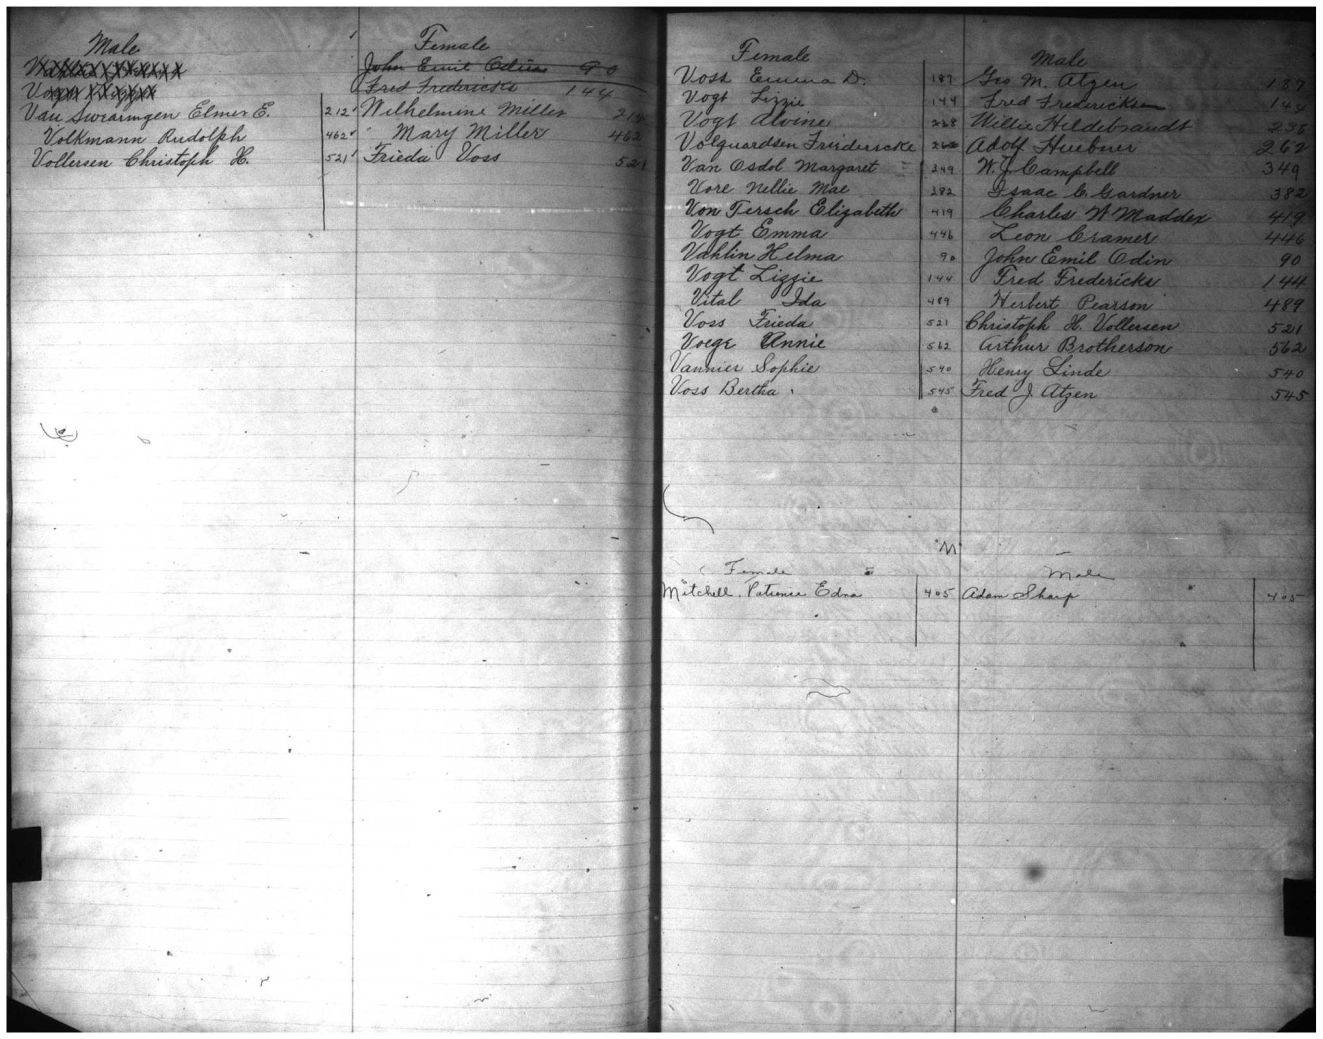 Male Female
John Emil Odin 90
Fred Fredericks 144
Van Swearingen Elmer E. 212 Wilhelmine Miller 212
Volkmann Rudolph 462 Mary Miller 462
Vollersen Christoph H. 521 Frieda Voss 521
Female Male
Voss Emma D. 187 Geo M. Atzen 187
Vogt Lizzie 144 Fred Fredericksen 144
Vogt Alvine 238 Willie Hildebrandt 238
Volquardsen Friedericke 262 Adolf Huebner 262
Van Osdol Margaret 349 W. J. Campbell 349
Vore Nellie Mae 382 Isaac C. Gardner 382
Von Tersch Elizabeth 419 Charles W Maddex 419
Vogt Emma 446 Leon Cramer 446
Vahlin Helma 90 John Emil Odin 90
Vogt Lizzie 144 Fred Fredericks 144
Vital Ida 489 Herbert Pearson 489
Voss Frieda 521 Christoph H. Vollersen 521
Voege Annie 562 Arthur Brotherson 562
Vannier Sophie 540 Henry Linde 540
Voss Bertha 545 Fred J. Atzen 545
"M"
Female Male
Mitchell, Patience Edna 405 Adam Sharp 405